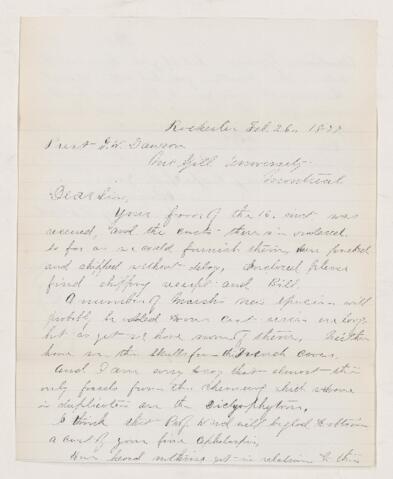 Rochester Feb. 26
J. W. Dawson
McGill University
Montreal
Dear Sir,
Your favor of the 16. inst was
received, and the casts therein ordered
so far as we could furnish them, were packed
and shipped without delay. Enclosed please
find shipping receipt and Bill.
A number of Marsh's new species will
probably be added to our cast series ere long,
but as yet we have none of them. Neither
have we the skulls from the French caves.
And I am sorry to say that almost the
only fossils from the Chemung which we have
in duplicate are the Dictyophyton.
I think that Prof. Ward will be glad to obtain
a cast of your fine
Have heard nothing yet in relation to this